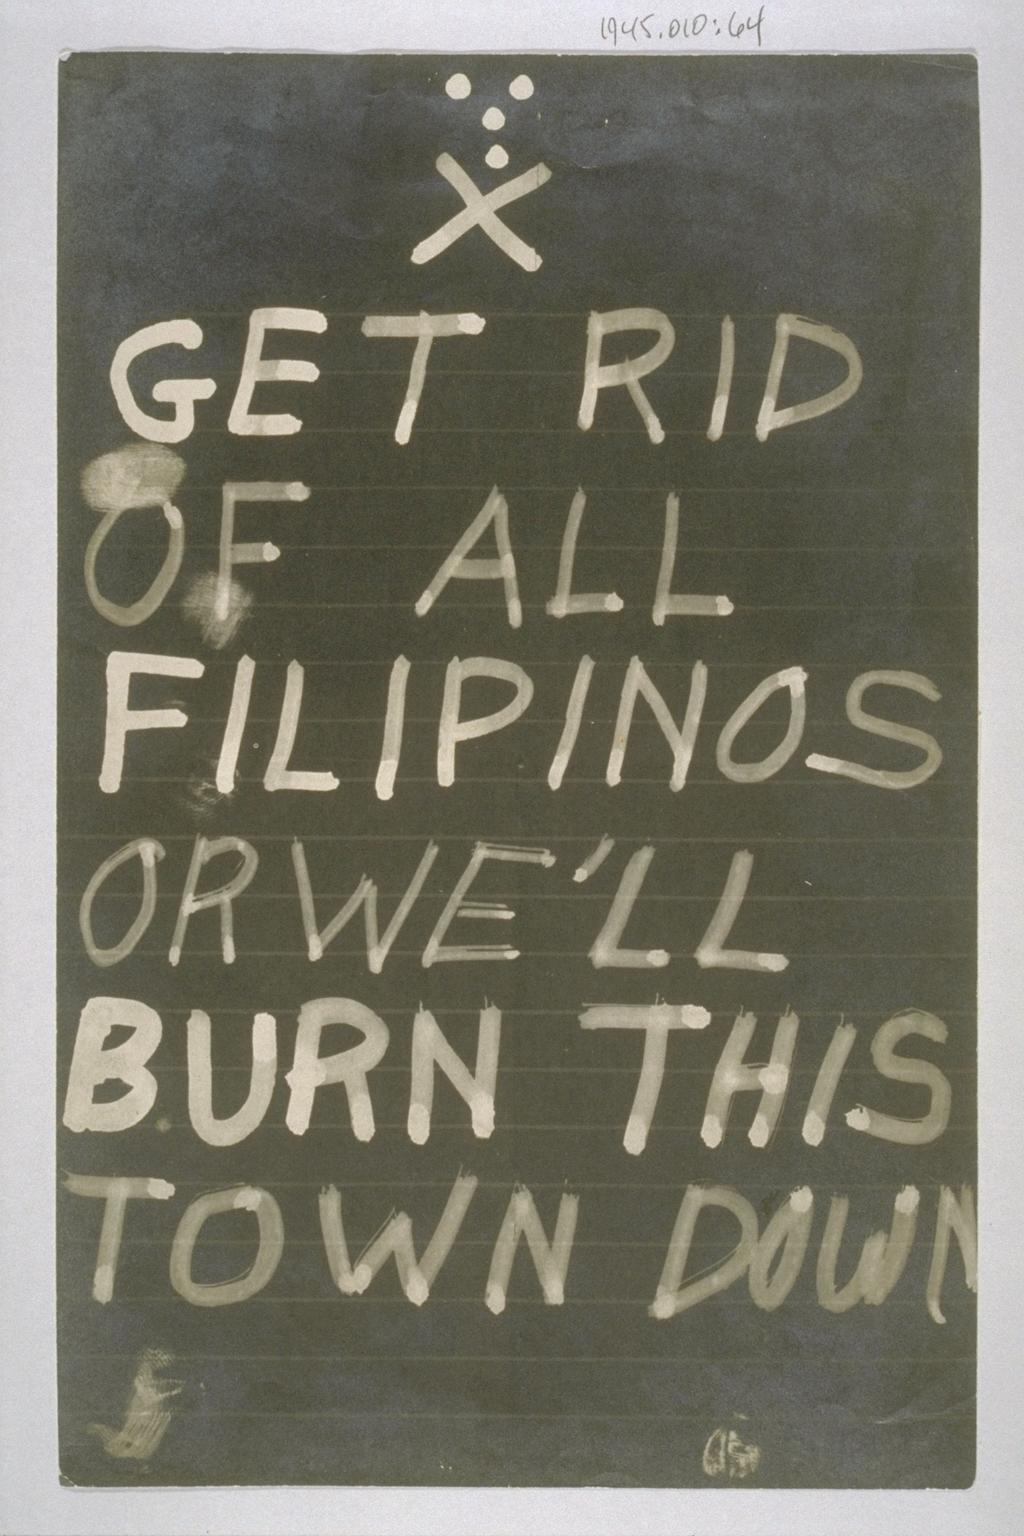 1945.010:64
X
GET RID
OF ALL
FILIPINOS
OR WE'LL
BURN THIS
TOWN DOWN